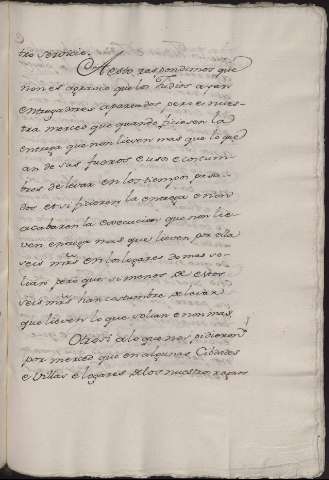 tro servicio.
A esto respondimos que
non es agravio que los Judios ayan
entregadores apartados pero es nues-
tra merced que quando ficieren la
entrega que non lieven mas que lo que
an de sus fueros e uso e costum-
bres de levar en los tiempos pasa-
dos et si ficieren la entrega e non
acabaren la execucion que non lie-
ven entrega mas que lieven por ella
seis mrs en los lugares do mas so-
lian pero que si menos de estos
seis mrs han costumbre de levar
que lieven lo que solian e non mas.
Otrosi a lo que nos pidieron
por merced que en algunas Cibdades
e Villas e logares de los nuestros regnos